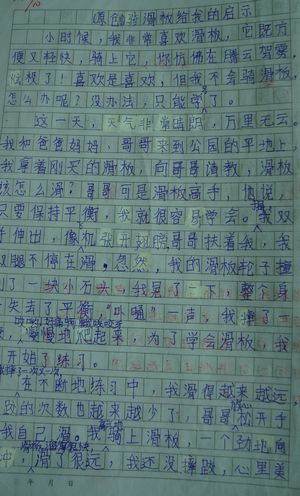 原创 滑板给我的启示
小时候,我非常喜欢滑板,它既方
便又轻快,骑上它,你仿佛在腾云驾雾,
炫极了!喜欢是喜欢,但我不会骑滑板,
怎么办呢?没办法,只能学了。
这一天,天气非常晴朗,万里无云。
我和爸爸妈妈、哥哥来到公园的平地上,
我拿着刚买的滑板,向哥哥请教,滑板
该怎么滑?哥哥可是滑板高手,他说,
只要保持平衡,我就很容易学会。我双
手伸出,像机 张开翅膀哥哥扶着我,我
双腿不停在滑。忽然,我的滑板轮子撞
到了一块小石头,我晃了一下,整个身
失去了平衡,"扑通"一声,我摔了
慢慢地爬起来,为了学会滑板,我
开始了练习。
一次又一次
在不断地练习中,我滑得越来越远
的次数也越来越少了。哥哥松开手
我自己滑。我骑上滑板,一个劲地向
冲,滑了很远,我还没摔跤,心里美
年 月 日